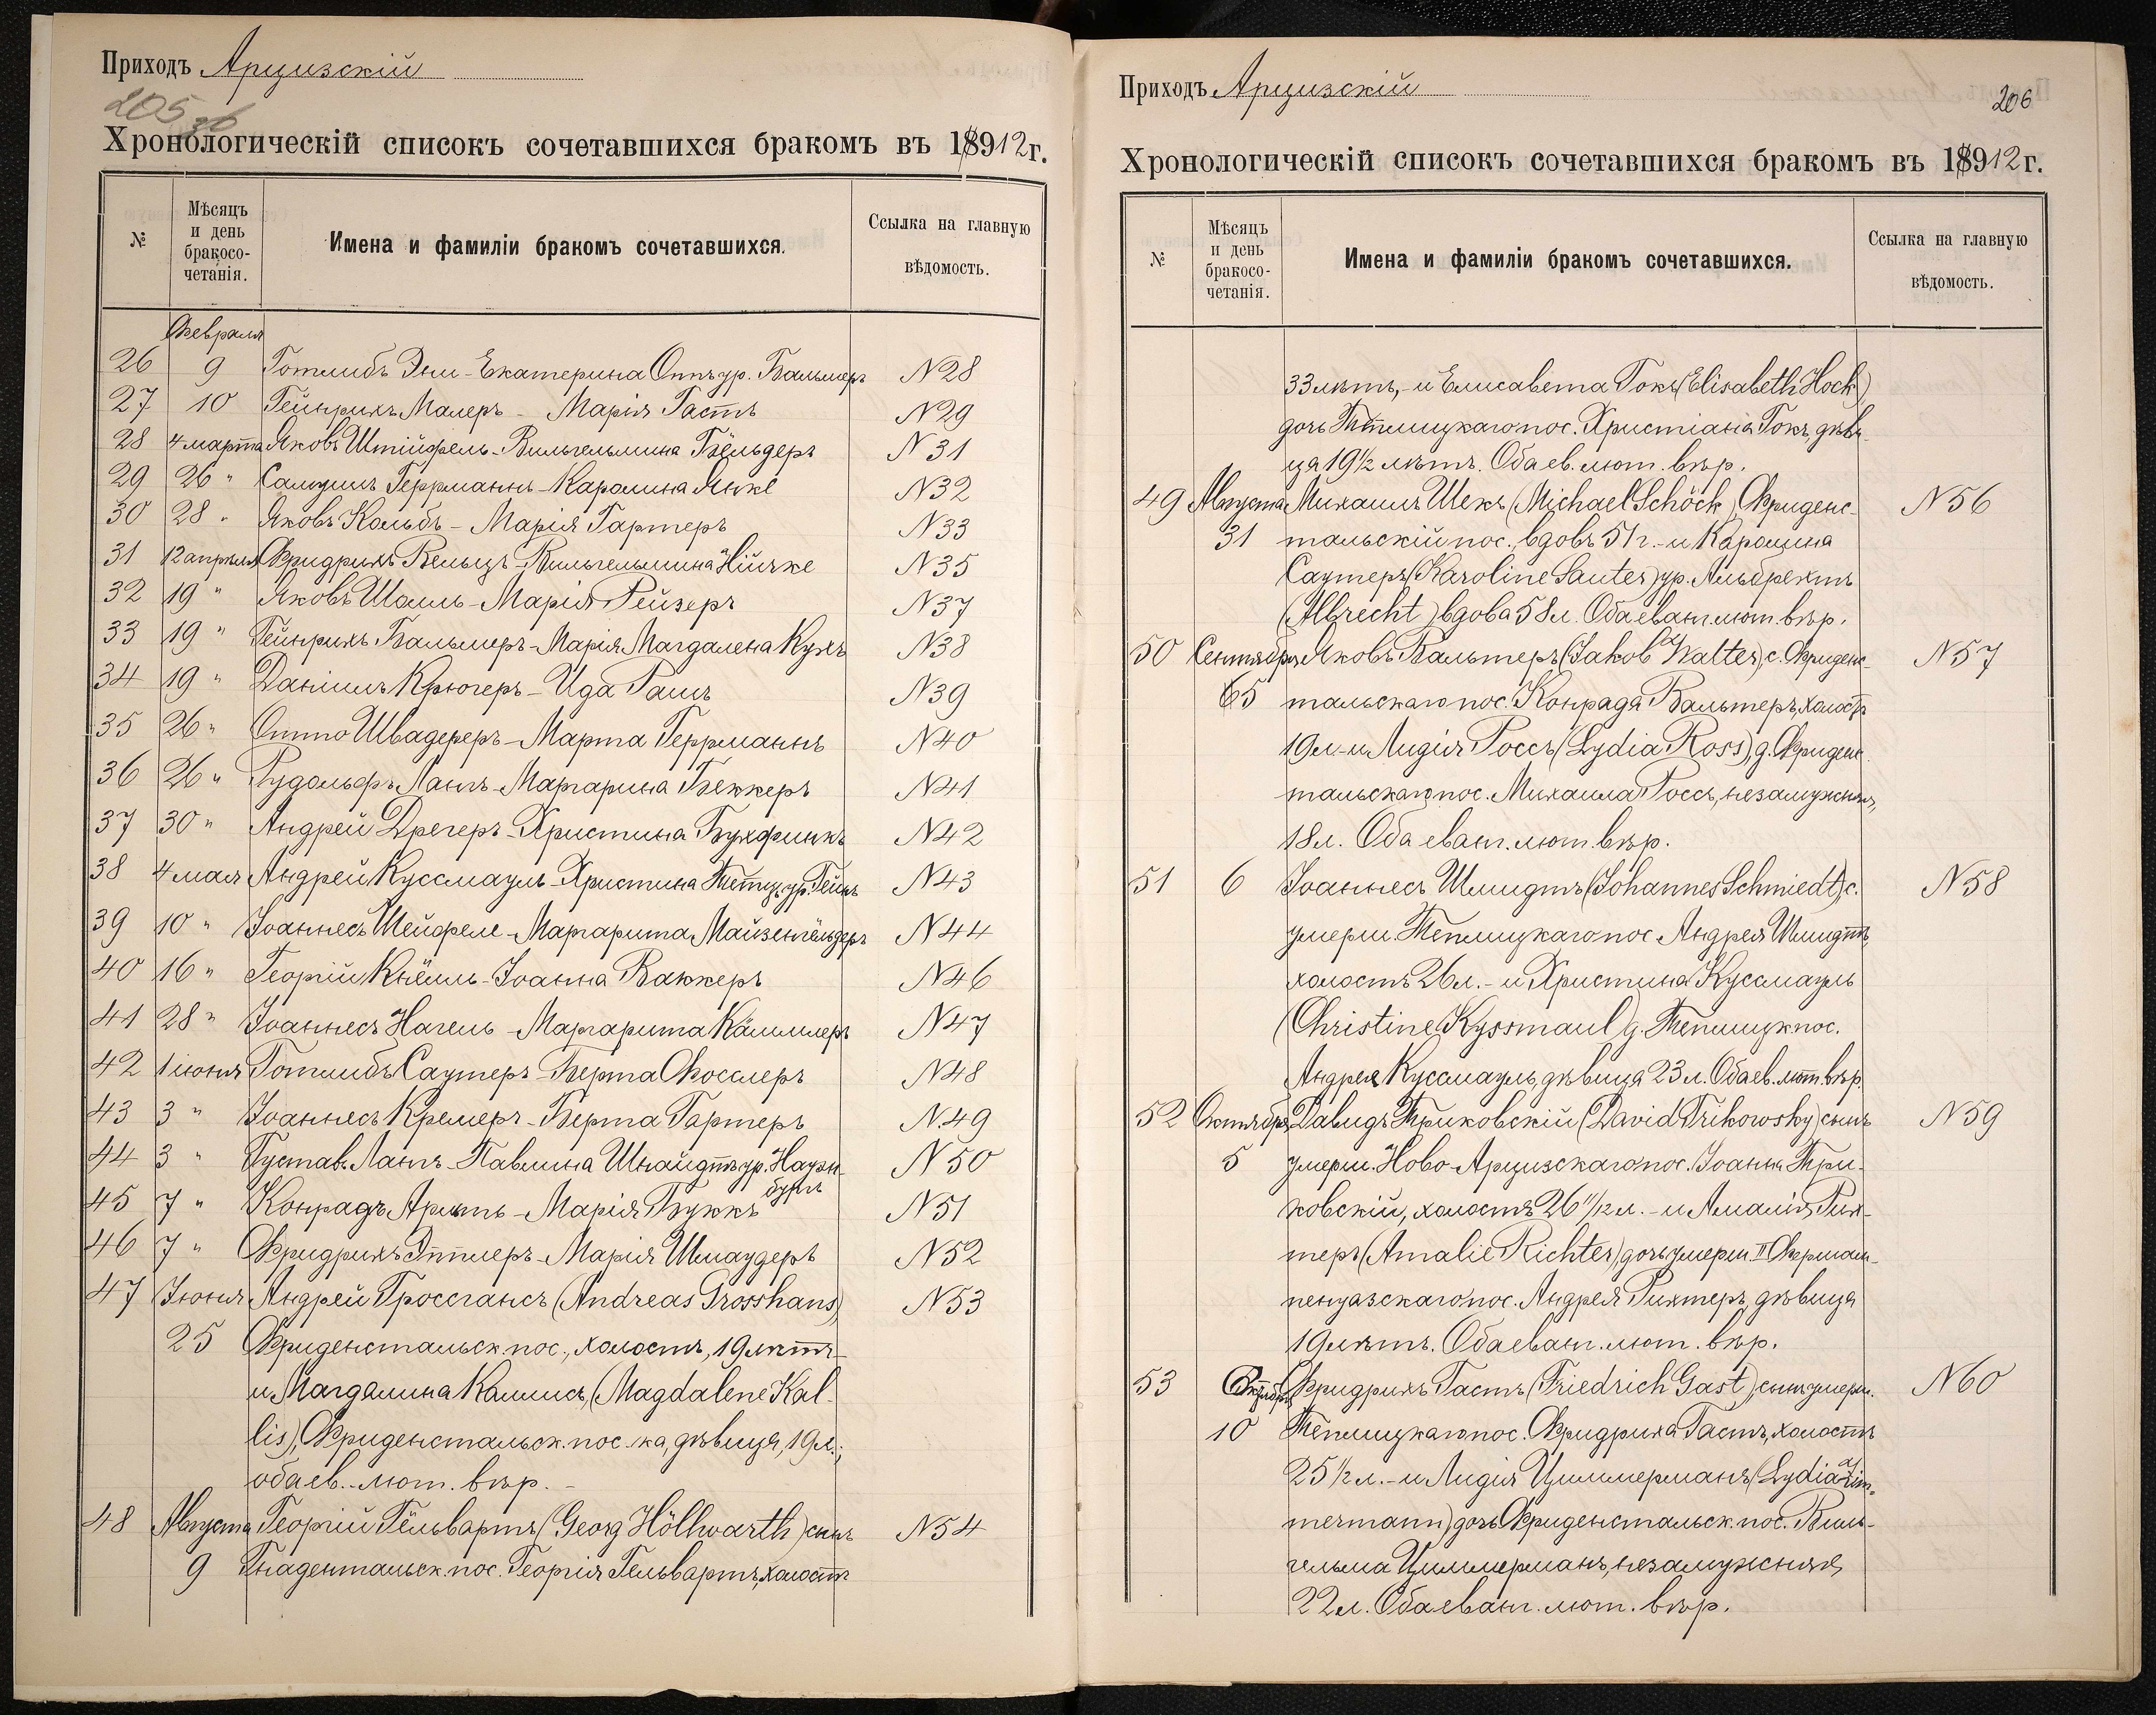 Приходъ Арцизскій
205 об
Хронологическій списокъ сочетавшихся бракомъ въ 18912 г.
№
Мѣсяцъ и день бракосо- четанія.
Имена и фамиліи бракомъ сочетавшихся.
Ссылка на главную вѣдомость.
Февраля
26 9 Готлибъ Эни - Екатерина Оттъ ур. Бальмеръ N 28
27 10 Гейнрихъ Малеръ - Марія Гастъ N 29
28 4 марта Яковъ Штійфель - Вильгельмина Гёльдеръ N 31
29 26 " Самуилъ Геррманнъ - Каролина Янке N 32
30 28 " Яковъ Кольбъ - Марія Гартеръ N 33
31 12 апрѣля Фридрихъ Вельцъ - Вильгельмина Ничке N 35
32 19 " Яковъ Шолль - Марія Рейзеръ N 37
33 19 " Гейнрихъ Бальмеръ - Марія Магдалена Кухъ N 38
34 19 " Даніилъ Крюгеръ - Ида Рашъ N 39
35 26 " Отто Швадереръ - Марта Геррманнъ N 40
36 26 " Рудольфъ Лангъ - Маргарина Беккеръ N 41
37 30 " Андрей Дрегеръ - Христина Бухфинкъ N 42
38 4 мая Андрей Куссмаулъ - Христина Тетцъ ур. Гейнъ N 43
39 10 " Іоаннесъ Шейфеле - Маргарита Майзенгёльдеръ N 44
40 16 " Георгій Кнёлль - Іоанна Ваккеръ N 46
41 28 " Іоаннесъ Нагель - Маргарита Кёммлеръ N 47
42 1 іюня Готлибъ Саутеръ - Берта Фосслеръ N 48
43 3 " Іоаннесъ Кремеръ - Берта Гартеръ N 49
44 3 " Густавъ Лангъ - Павлина Шнайдтъ ур. Наум- N 50
бургъ
45 7 " Конрадъ Арнтъ - Марія Буккъ N 51
46 7 " Фридрихъ Эттлеръ - Марія Шмаудеръ N 52
47 Іюня Андрей Гроссгансъ (Andreas Grosshans), N 53
25 Фриденстальск. пос., холостъ, 19 лѣтъ -
и Магдалина Каллисъ, (Magdalene Kal-
lis), Фриденстальск. пос-ка, дѣвица, 19 л.;
оба ев.-лют. вѣр. -
48 Августа Георгій Гёльвартъ (Georg Höllwarth) сынъ N 54
9 Гнадентальск. пос. Георгія Гельвартъ, холостъ
Приходъ Арцизскій
206
Хронологическій списокъ сочетавшихся бракомъ въ 18912 г.
№
Мѣсяцъ и день бракосо- четанія.
Имена и фамиліи бракомъ сочетавшихся.
Ссылка на главную вѣдомость.
33 лѣтъ, - и Елисавета Гокъ (Elisabeth Hock)
дочь Теплицкаго пос. Христіана Гокъ, дѣви-
ца 19½ лѣтъ. Оба ев. лют. вѣр.
49 Августа Михаилъ Шекъ (Michael Schöck) Фриденс- N 56
31 тальскій пос., вдовъ 51 г. - и Каролина
Саутеръ (Karoline Sauter) ур. Альбрехтъ
(Albrecht) вдова 58 л. Оба еванг. лют. вѣр.
50 Сентября Яковъ Вальтеръ (Jakob Walter) с. Фриденс- N 57
5 тальскаго пос. Конрада Вальтеръ, холостъ
19 л. - и Лидія Россъ (Lydia Ross), д. Фриденс-
тальскаго пос. Михаила Россъ, незамужняя,
18 л. Оба еванг. лют. вѣр.
51 6 Іоаннесъ Шмидтъ (Johannes Schmiedt), с. N 58
умерш. Теплицкаго пос. Андрея Шмидтъ,
холостъ 26 л. - и Христина Куссмаулъ
(Christine Kyssmaul) д. Теплицк. пос.
Андрея Куссмаулъ, дѣвица 23 л. Оба ев. лют. вѣр.
52 Октября Давидъ Триковскій (David Trikowsky) сынъ N 59
5 умерш. Ново-Арцизскаго пос. Іоанна Три-
ковскій, холостъ 26 11/12 л. - и Амалія Рих-
теръ (Amalie Richter), дочь умерш. II Фершам-
пенуазскаго пос. Андрея Рихтеръ, дѣвица
19 лѣтъ. Оба еванг. лют. вѣр.
53 Октября Фридрихъ Гастъ (Friedrich Gast), сынъ умерш. N 60
10 Теплицкаго пос. Фридриха Гастъ, холостъ
25½ л. - и Лидія Циммерманъ (Lydia Zim-
mermann) дочь Фриденстальск. пос. Виль-
гельма Циммерманъ, незамужняя,
22 л. Оба еванг. лют. вѣр.